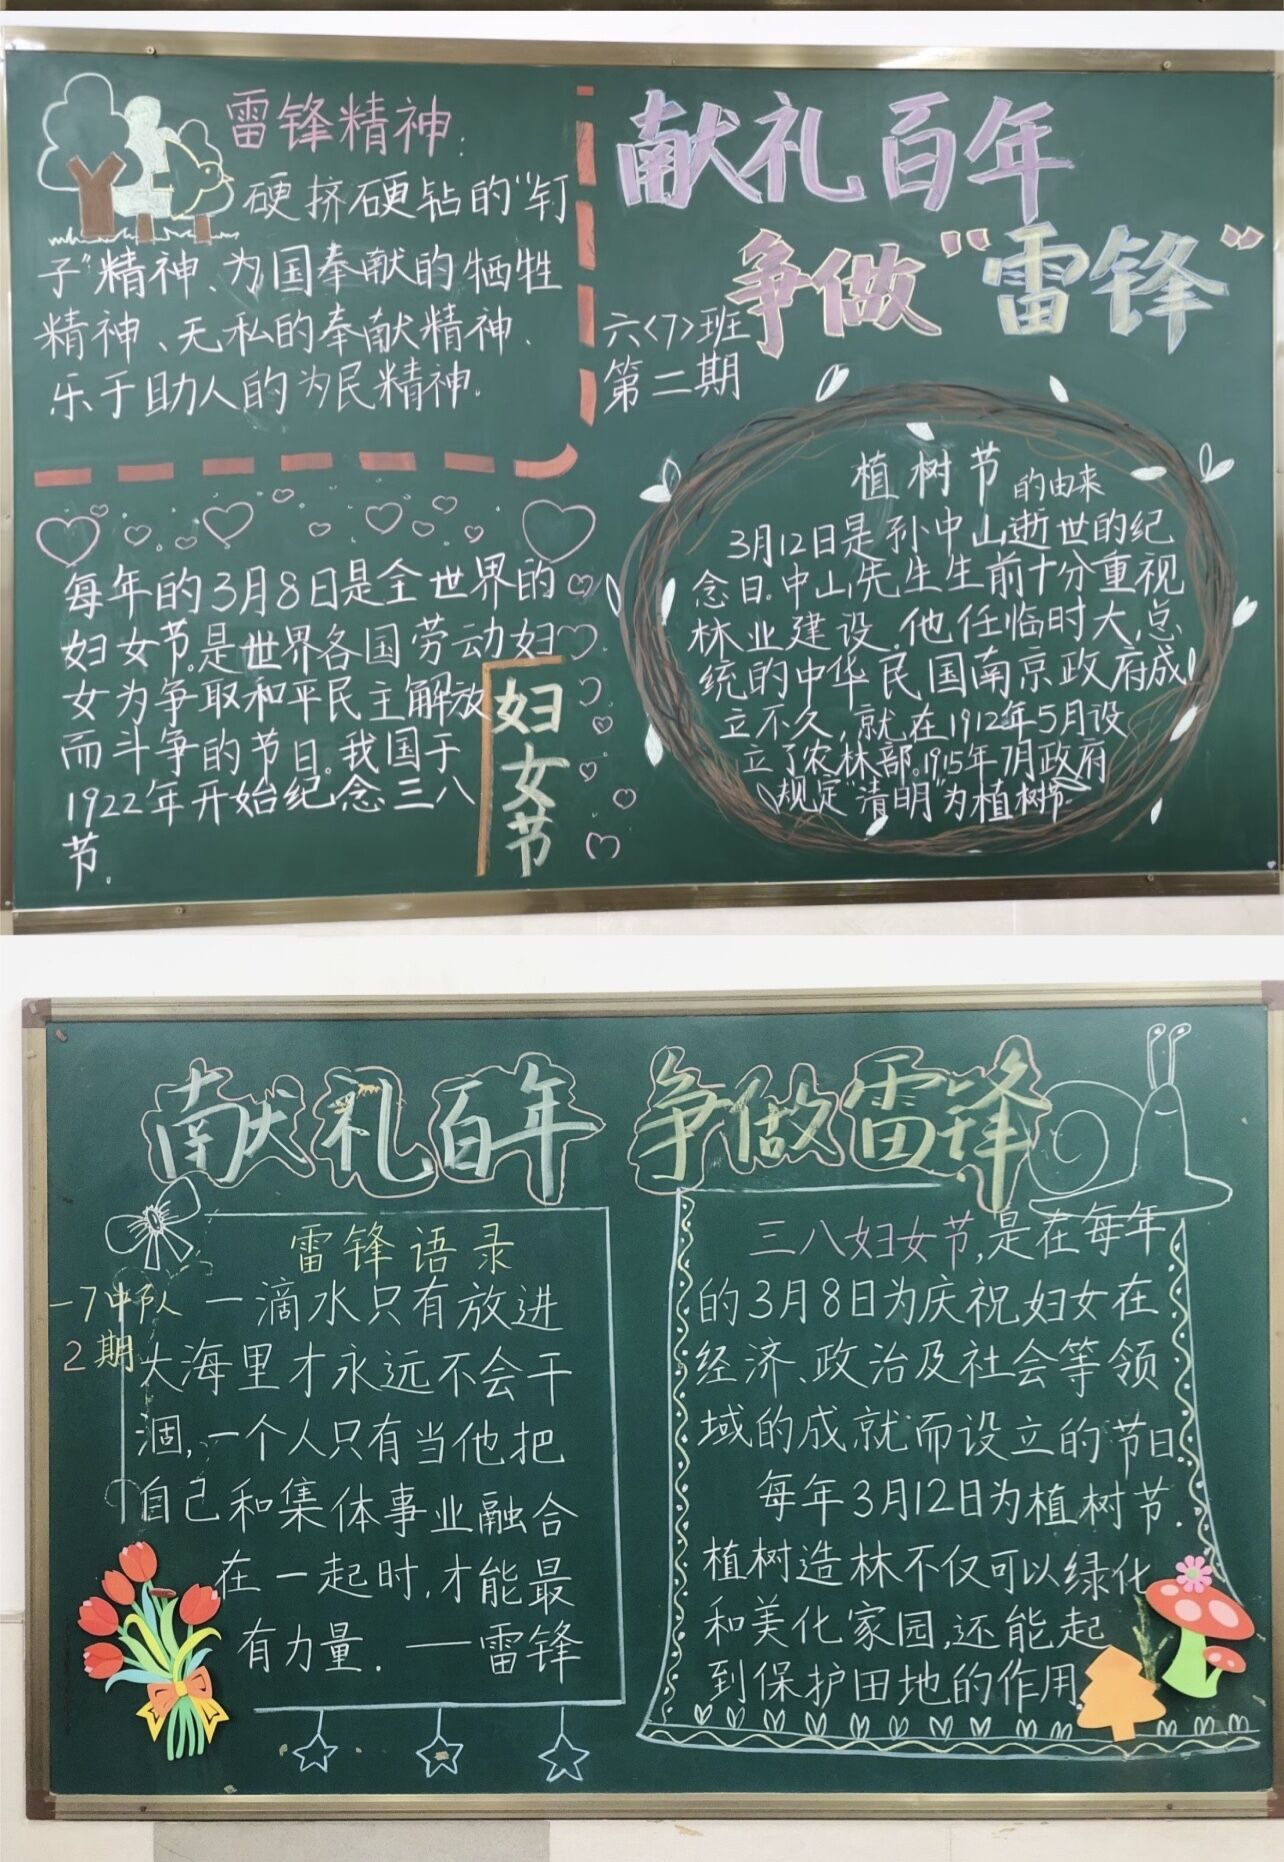 雷锋精神：
硬挤硬钻的“钉
子”精神、为国奉献的牺牲
精神、无私的奉献精神、
乐于助人的为民精神。
献礼百年
争做“雷锋”
六<7>班
第二期
每年的3月8日是全世界的
妇女节。是世界各国劳动妇
女为争取和平民主解放
而斗争的节日。我国于
1922年开始纪念三八
节.
妇女节
植树节的由来
3月12日是孙中山逝世的纪
念日.中山先生生前十分重视
林业建设.他任临时大总
统的中华民国南京政府成
立不久,就在1912年5月设
立了农林部.1915年7月政府
规定“清明”为植树节.
献礼百年 争做雷锋
一7中队
2期
雷锋语录
一滴水只有放进
大海里才永远不会干
涸,一个人只有当他把
自己和集体事业融合
在一起时,才能最
有力量. ——雷锋
三八妇女节,是在每年
的3月8日为庆祝妇女在
经济、政治及社会等领
域的成就而设立的节日.
每年3月12日为植树节.
植树造林不仅可以绿化
和美化家园,还能起
到保护田地的作用.